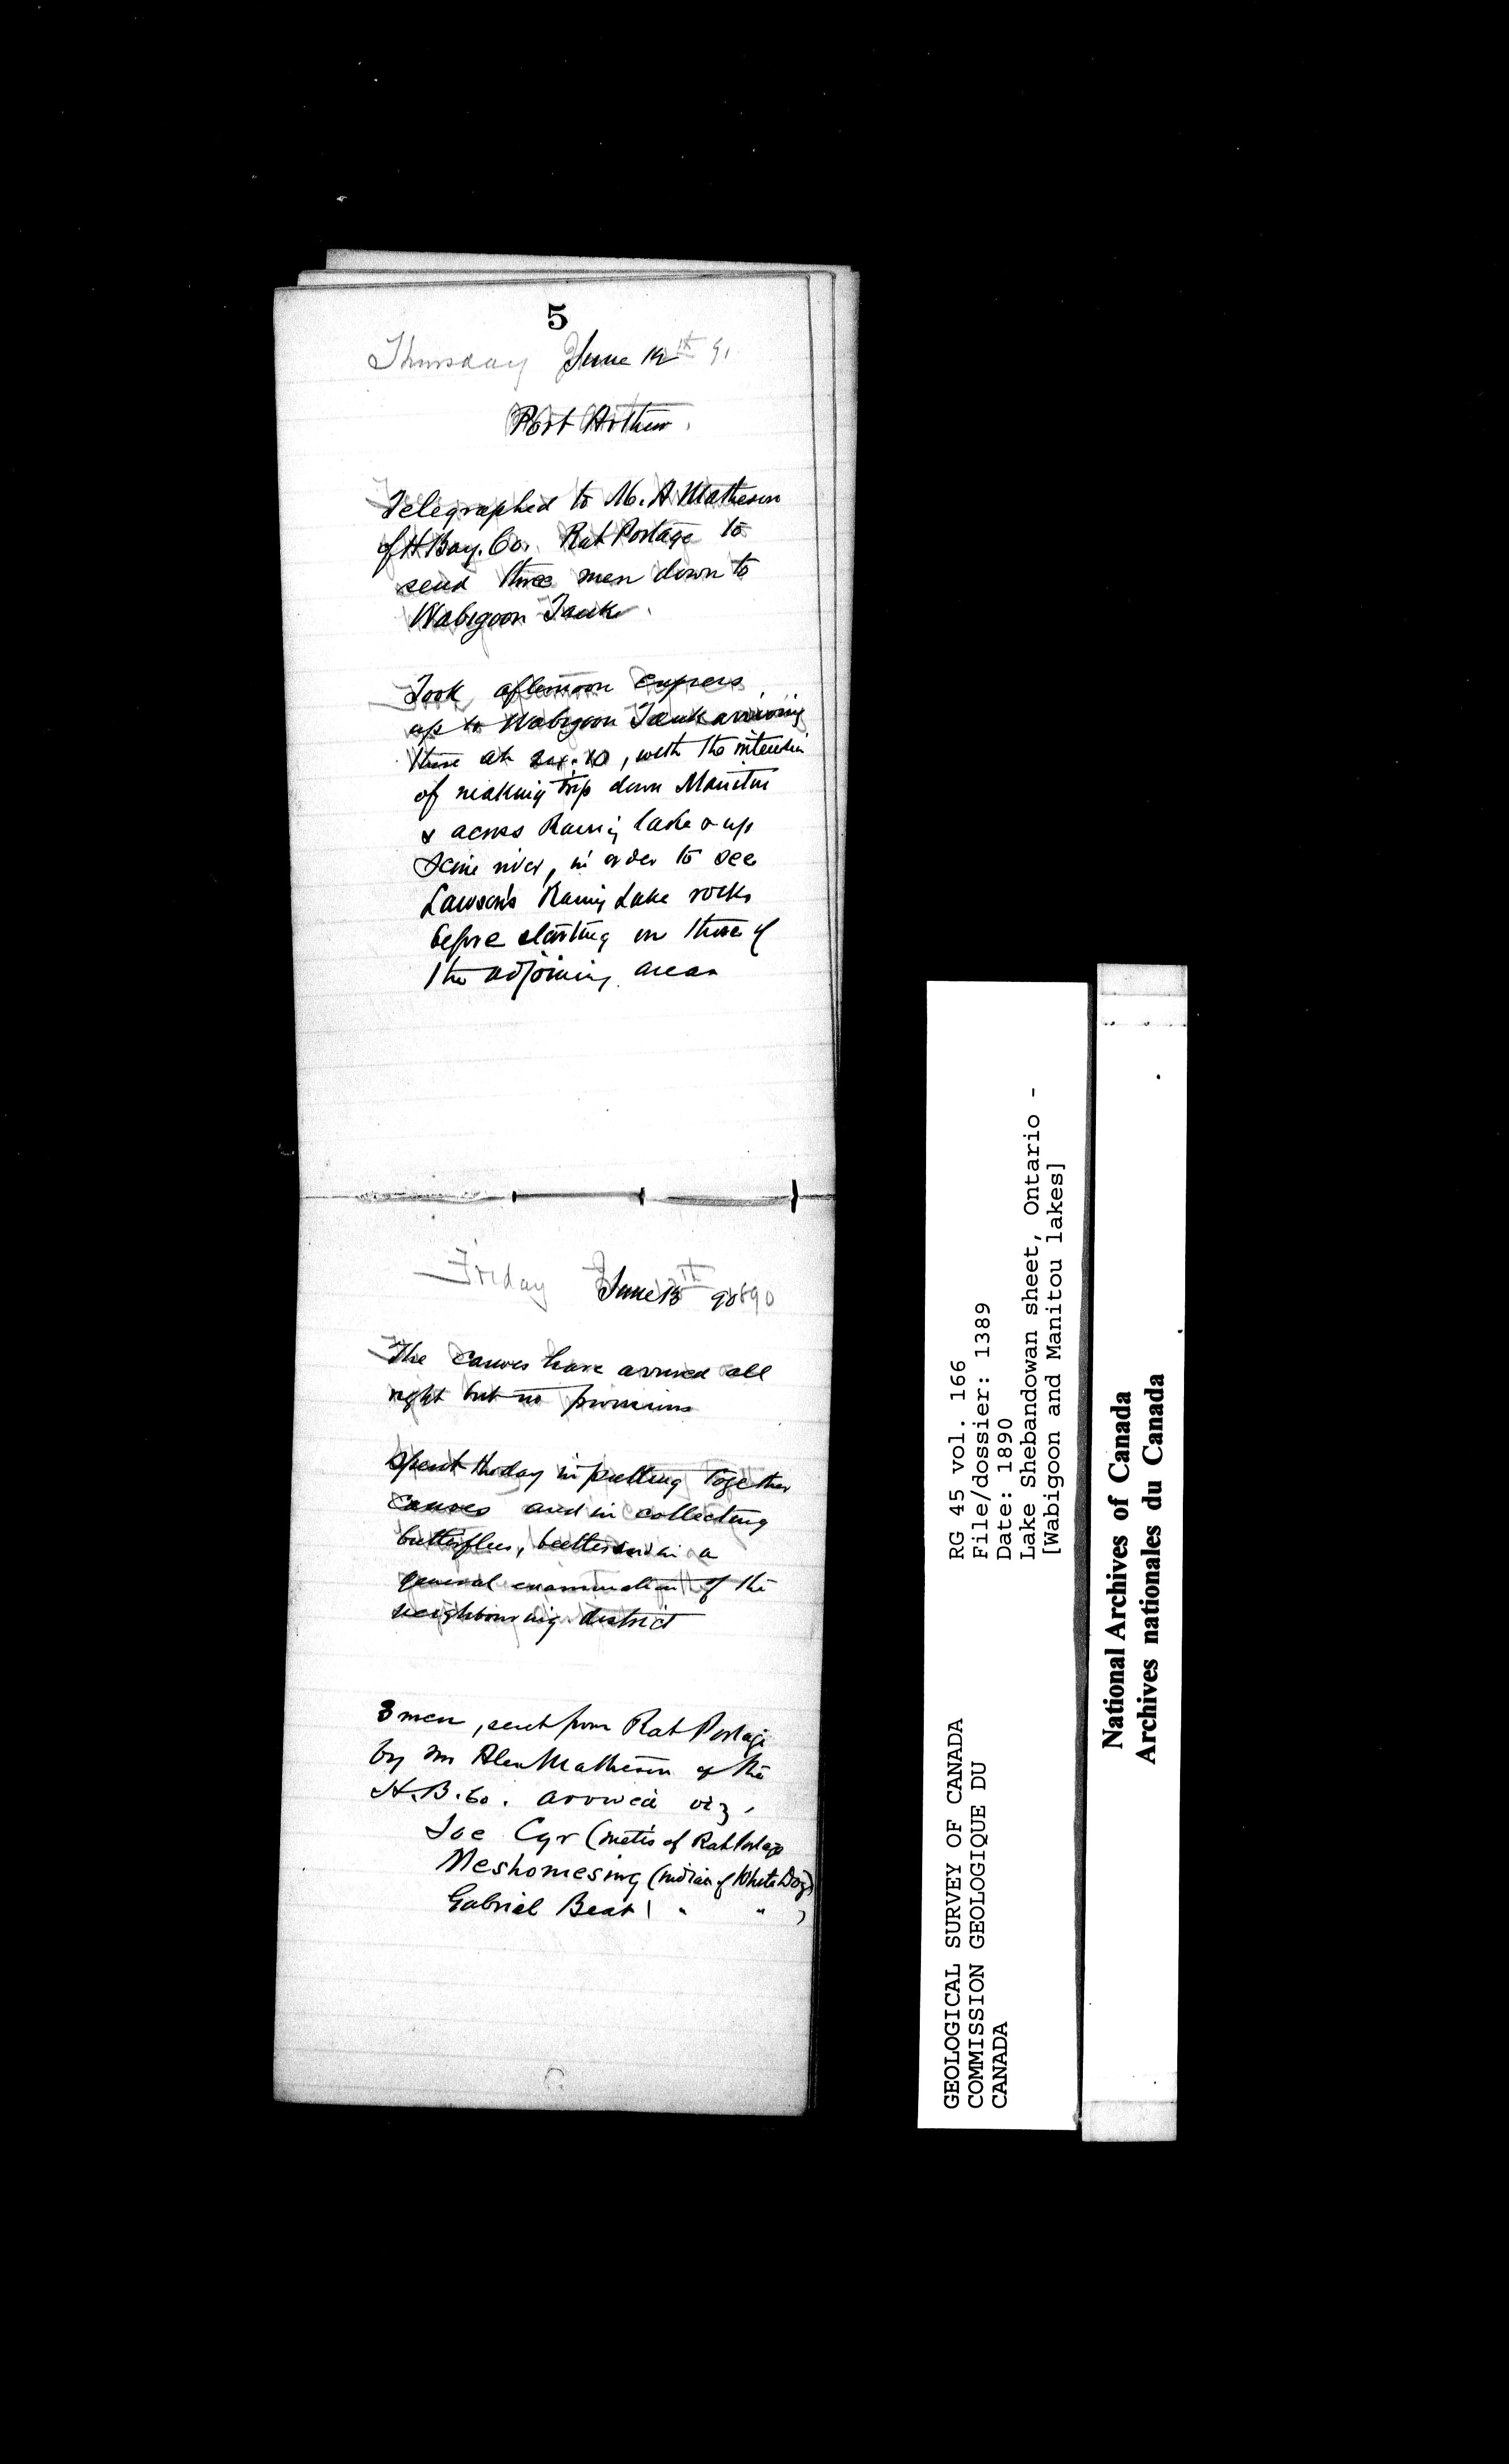 5
Thursday June 12th 91
Port Arthur.
Telegraphed to Mr. A Matheson
of H Bay. Co. Rat Portage to
send three men down to
Wabigoon Tank.
Took afternoon express
up to Wabigoon Tank arriving
there at , with the intention
of making trip down Manitou
& across Rainy lake & up
Seine river, in order to see
Lawson's Rainy Lake rocks
before starting on those of
the adjoining area
Friday June 13th 90 890
The canoes have arrived all
right but no provisions
Spent the day in putting together
canoes and in collecting
butterflies, beetles and in a
general examination of the
neighbouring district
3 men, sent from Rat Portage
by Mr Alex Matheson of the
H.B.Co. arrived viz,
Joe Cyr (metis of Rat Portage
Meshomesing (Indian of White Dog)
Gabriel Beat ( " " )
GEOLOGICAL SURVEY OF CANADA
COMMISSION GEOLOGIQUE DU
CANADA
RG 45 vol. 166
File/dossier: 1389
Date: 1890
Lake Shebandowan sheet, Ontario -
[Wabigoon and Manitou lakes]
National Archives of Canada
Archives nationales du Canada